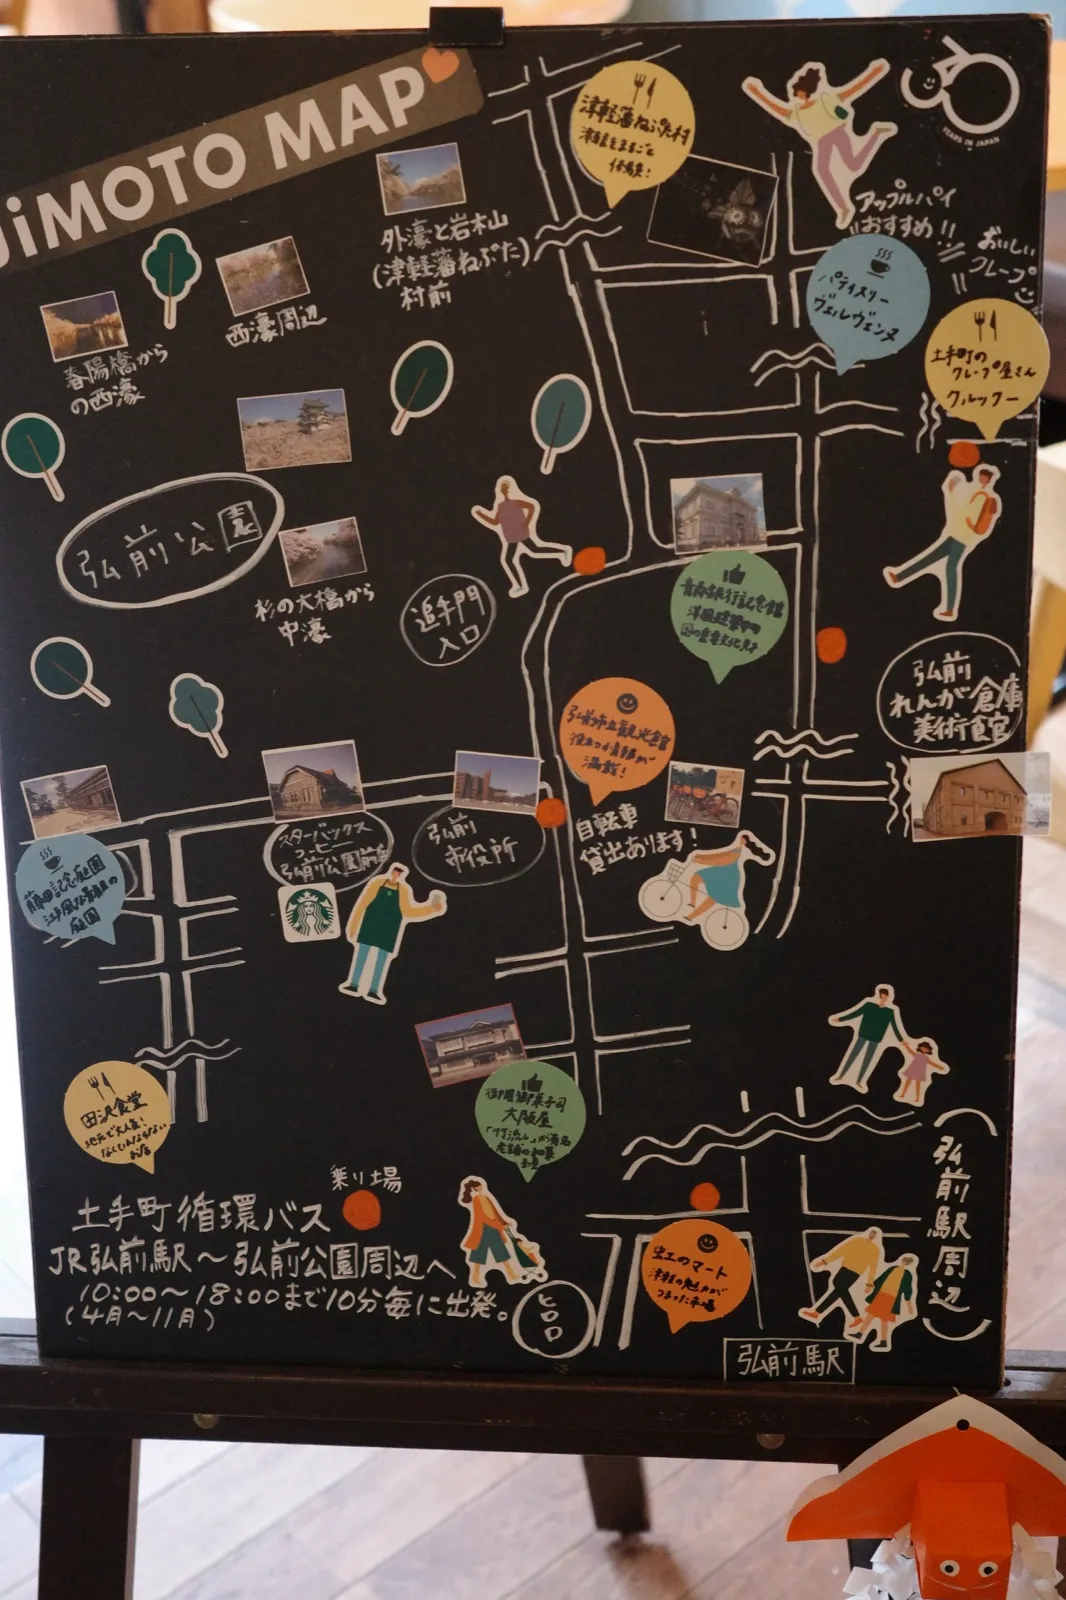 JiMOTO MAP
YEARS IN JAPAN
津軽藩ねぷた村
津軽をまるごと
体験!
外濠と岩木山
(津軽藩ねぷた)
村前
アップルパイ
おすすめ!!
おいしい
クレープ
パティスリー
ヴェルヴェンヌ
土手町の
クレープ屋さん
クルック―
西濠周辺
春陽橋から
の西濠
弘前公園
杉の大橋から
中濠
追手門
入口
青森銀行記念館
洋風建築の
国の重要文化財
弘前
れんが倉庫
美術食官
弘前市立観光館
役立つ情報が
満載!
自転車
貸出あります!
スターバックス
コーヒー
弘前公園前
弘前
市役所
藤田記念庭園
江戸風な
庭園
田沢食堂
地元で大人気!
お店
御用御菓子司
大阪屋
「竹流し」が有名
老舗の和菓
子屋
乗り場
土手町循環バス
JR弘前駅～弘前公園周辺へ
10:00～18:00まで10分毎に出発。
(4月～11月)
ヒロロ
虹のマート
津軽の魅力が
つまった市場
(弘前駅周辺)
弘前駅